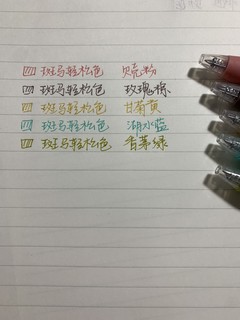 斑马轻松色 贝壳粉
斑马轻松色 玫瑰棕
斑马轻松色 甘菊黄
斑马轻松色 湖水蓝
斑马轻松色 香茅绿